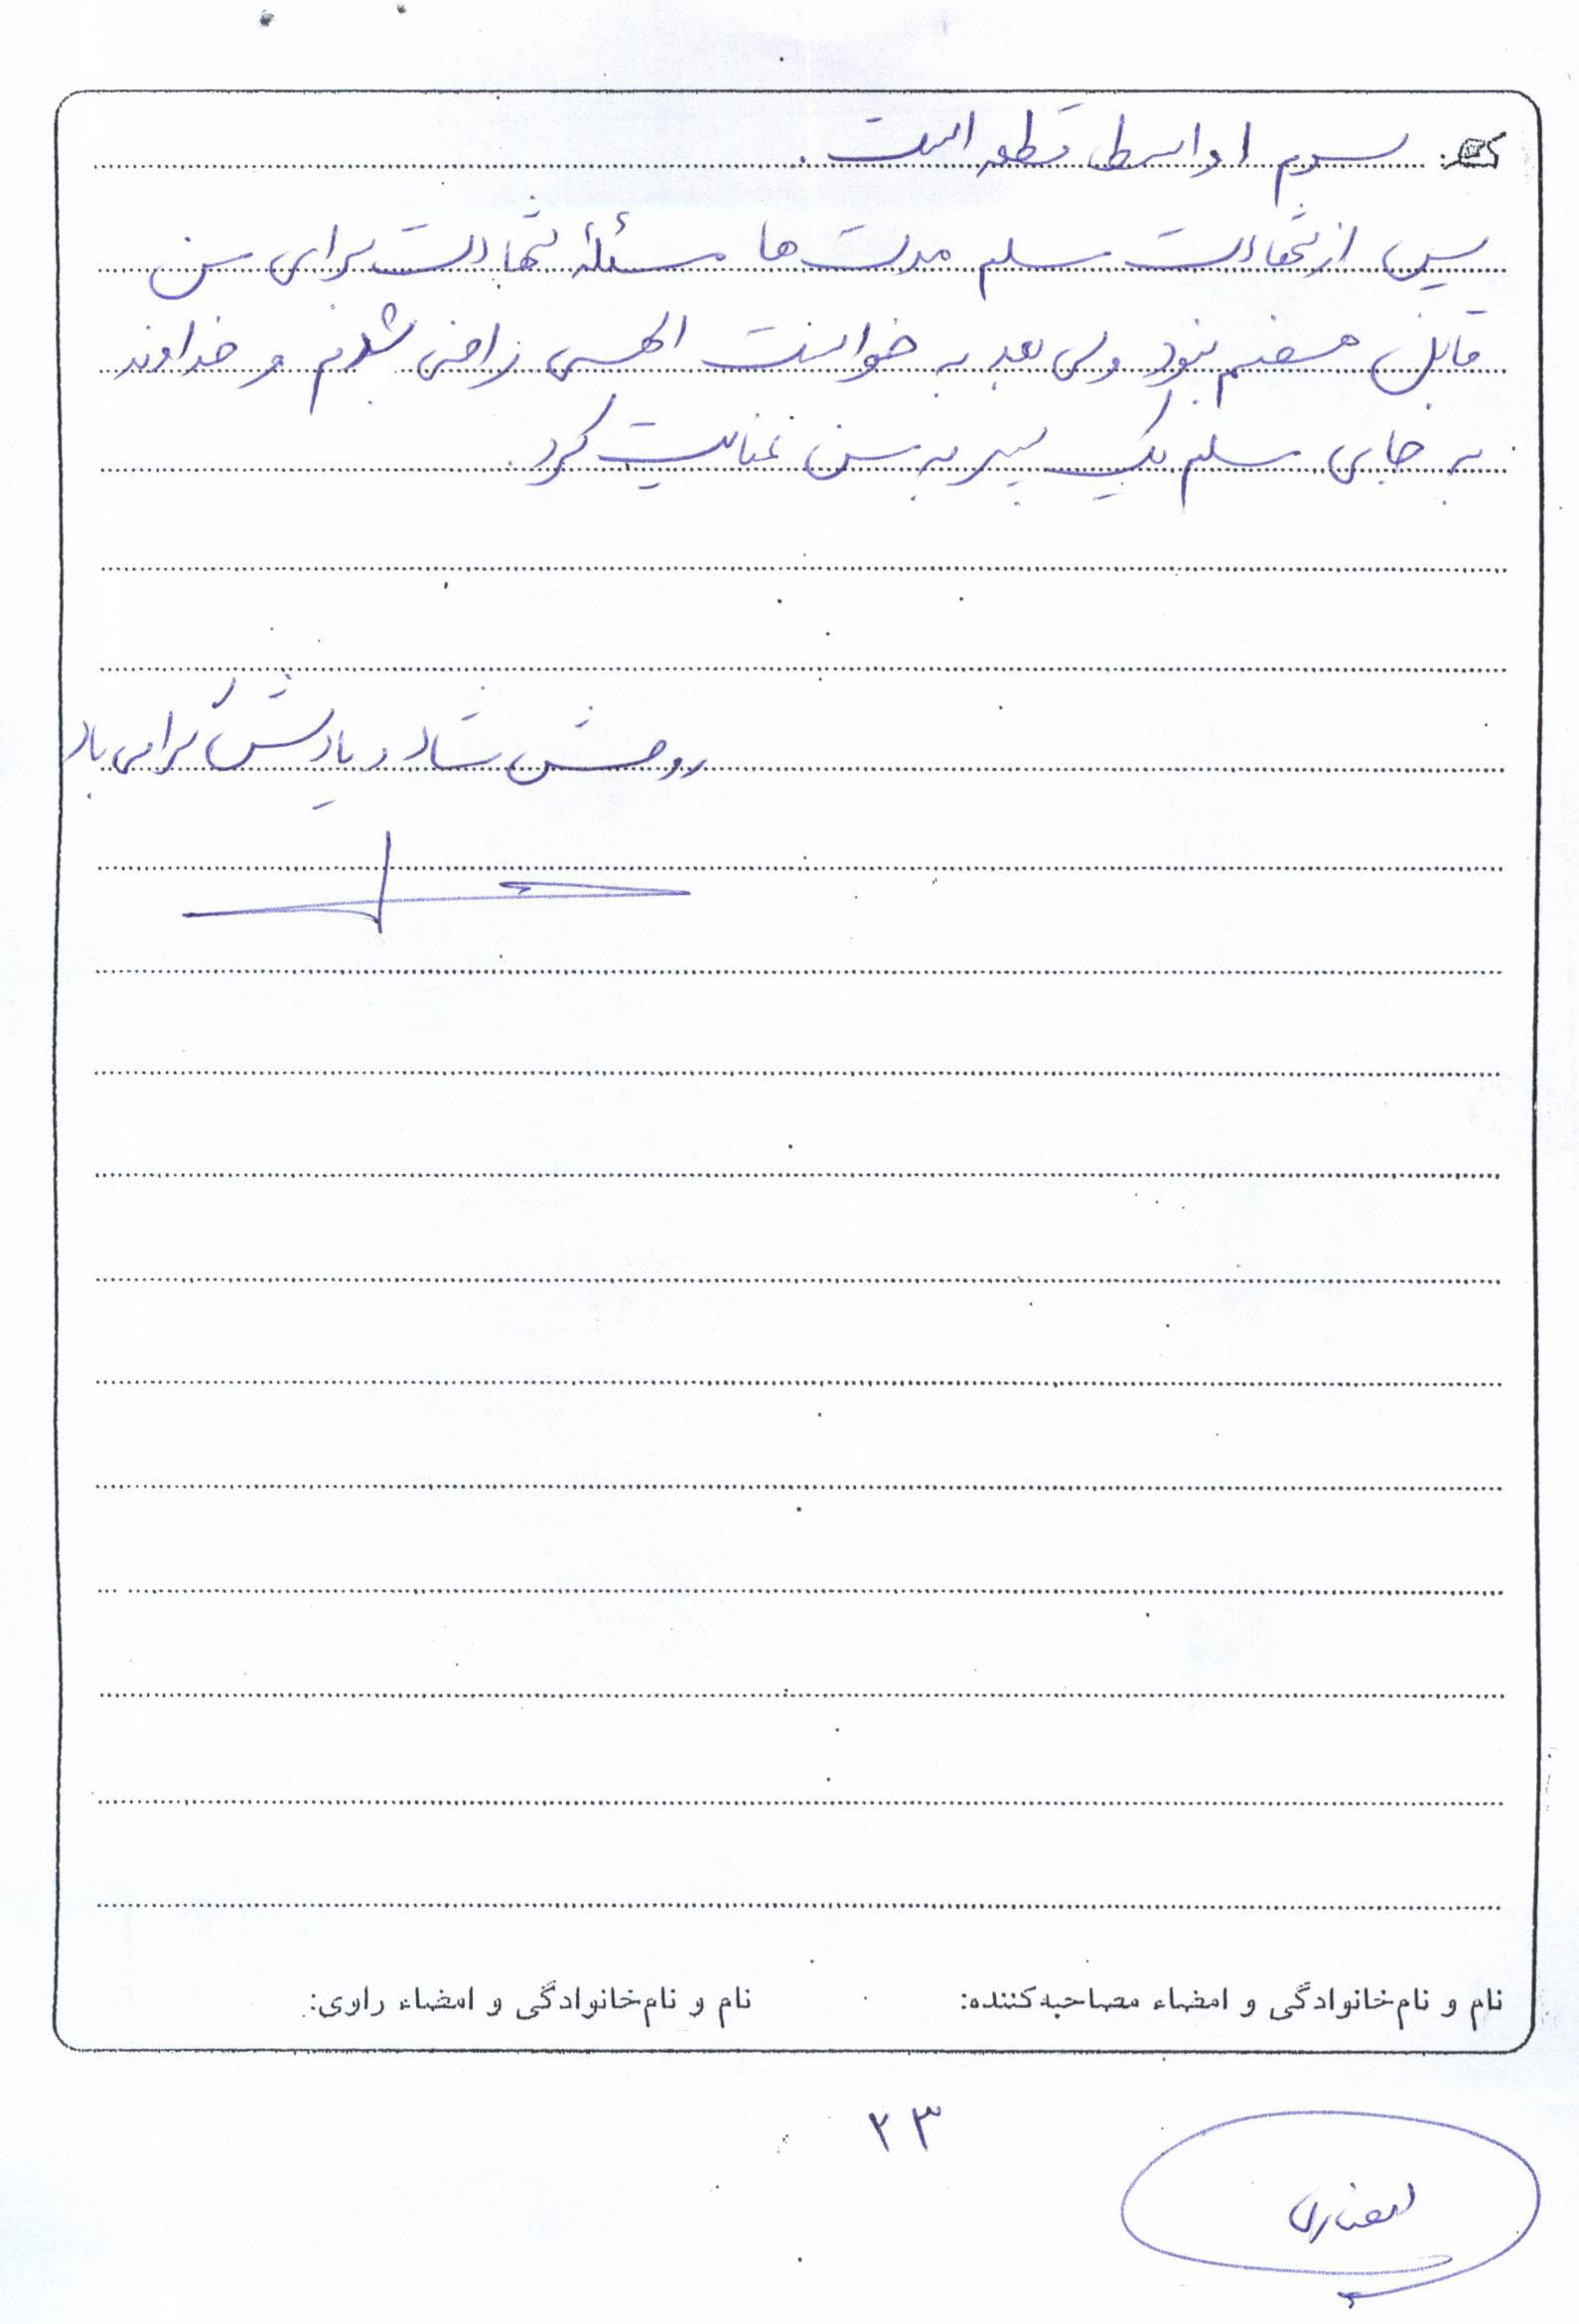 سوم اواسط قطور است.
پس از شهادت سلم مدت ها مسئلهٔ شهادت برای من
قابل هضم نبود ولی بعد به خواست الهی راضی شدم و خداوند
به جای سلم یک پسر به من عنایت کرد.
روحش شاد و یادش گرامی باد
نام و نام‌خانوادگی و امضاء مصاحبه‌کننده: نام و نام‌خانوادگی و امضاء راوی:
۲۳